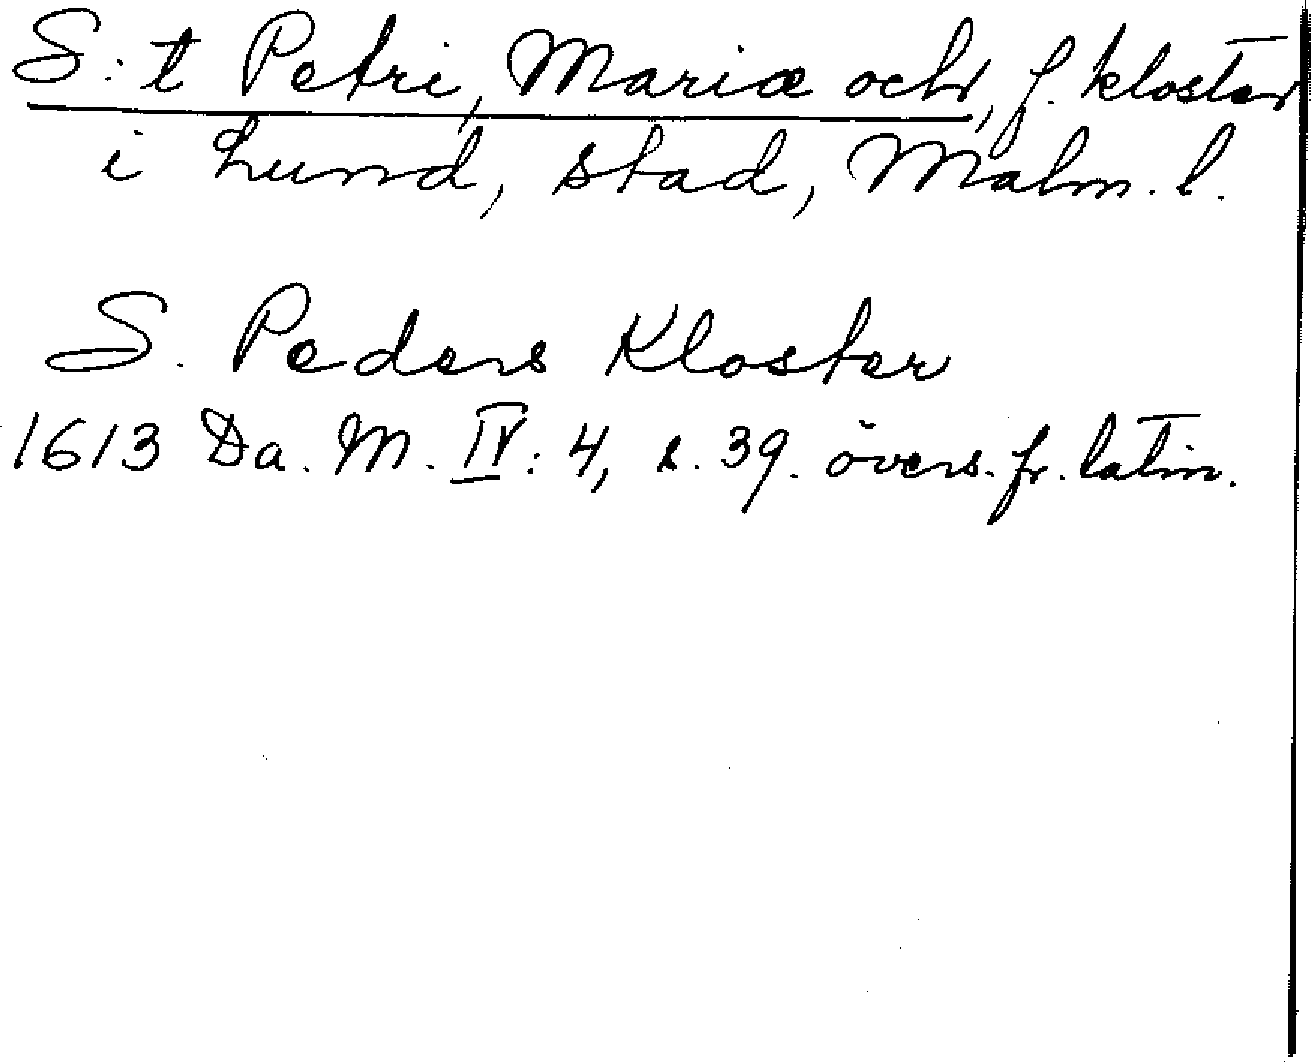 S:t Petri, Mariæ och, f. kloster
i Lund, stad, Malm. l.
S. Peders Kloster
1613 Da. M. IV: 4, s. 39. övers. fr. latin.